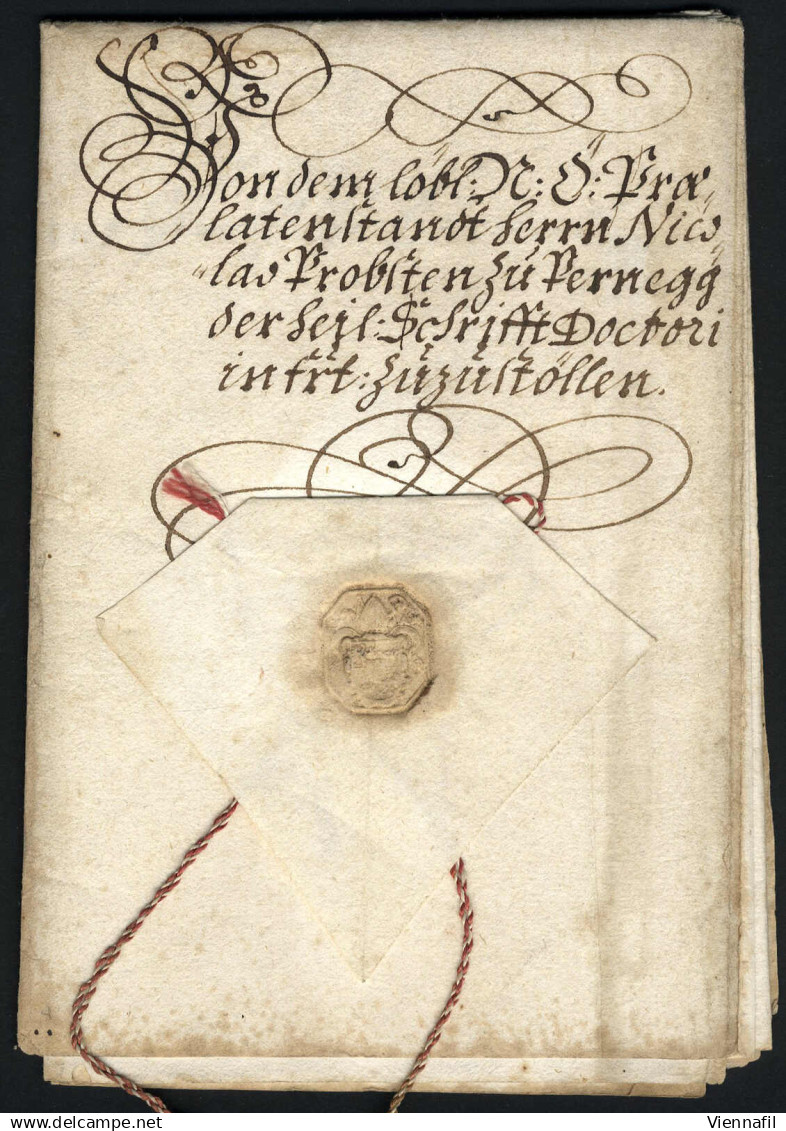 Von dem löbl: N: Ö: Præ
latenstandt Herrn Nico
las Probsten zu Pernegg
der heil: Schrifft Doctori
in frt: zuzustöllen.
Viennafil